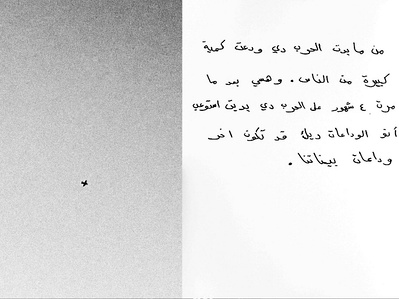 من ما بدت الحرب دي ودعت كمية
كبيرة من الناس. وهسي بعد ما
مرت ٤ شهور على الحرب دي بديت استوعب
أنو الوداعات ديك قد تكون اخر
وداعات بيناتنا.